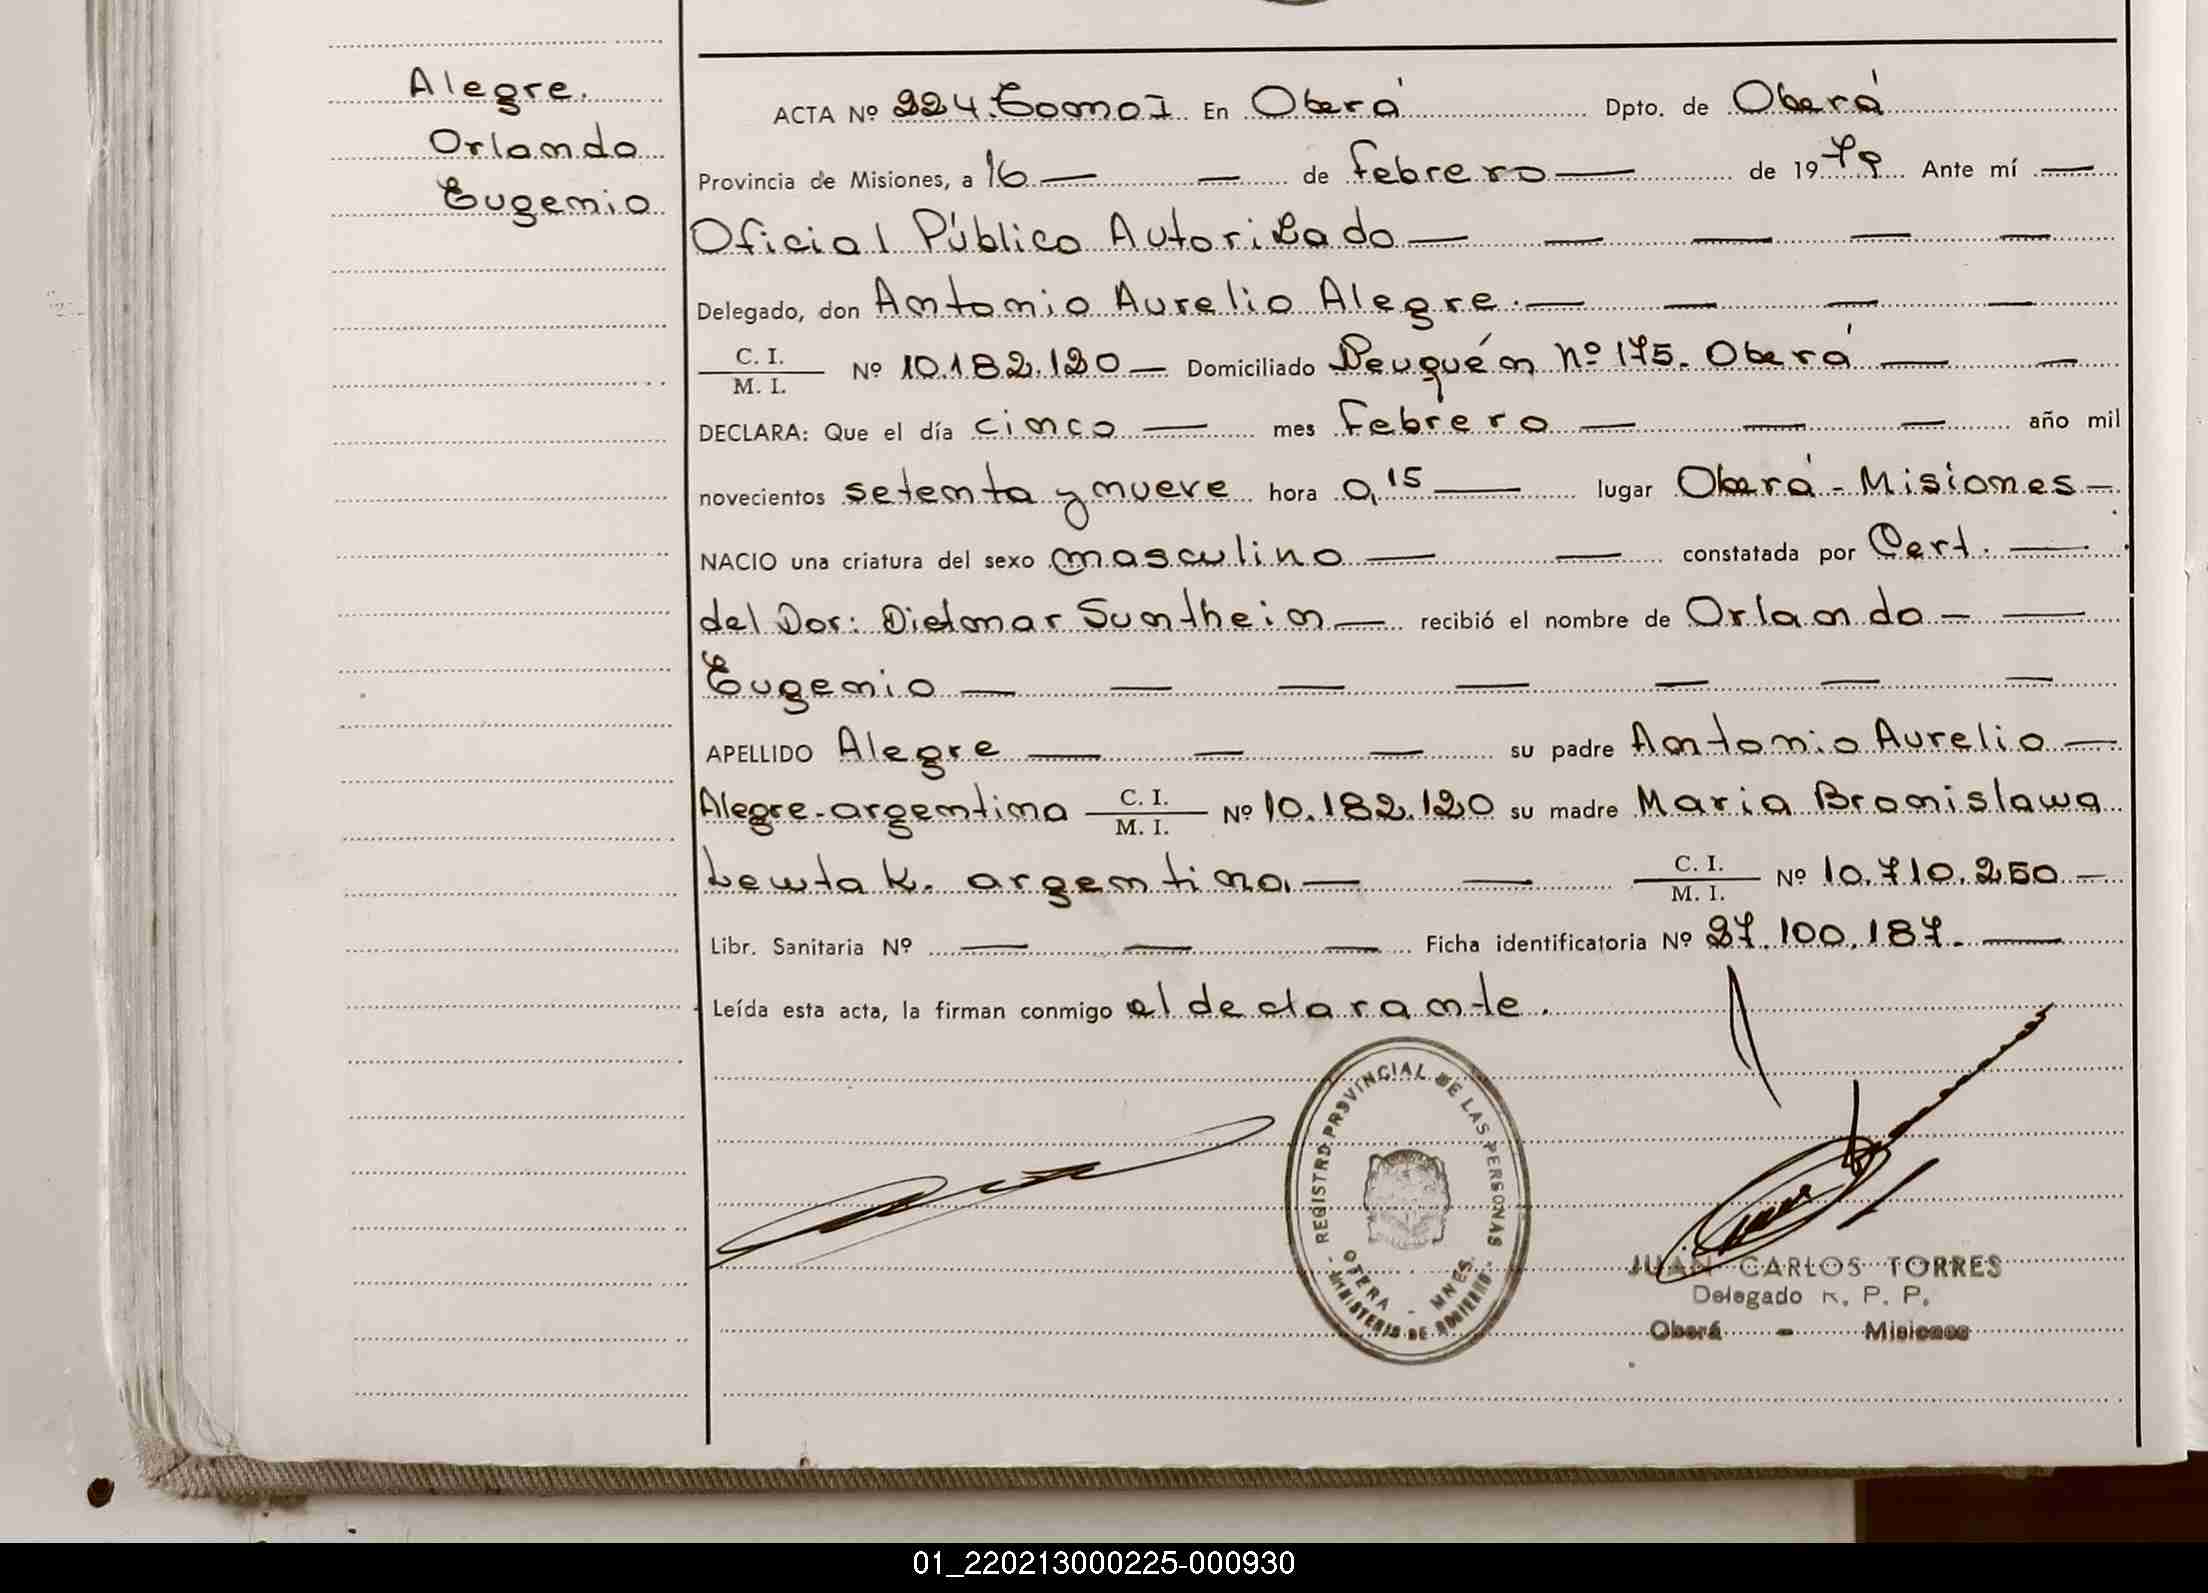 Alegre.
Orlando
Eugenio
ACTA Nº 224. Tomo I En Oberá Dpto. de Oberá
Provincia de Misiones, a 16 — — de febrero — de 1979 Ante mí —
Oficial Público Autorizado — — — — —
Delegado, don Antonio Aurelio Alegre. — — — —
C. I.
M. I. Nº 10.182.120 — Domiciliado Neuquén Nº 175. Oberá — —
DECLARA: Que el día cinco — mes febrero — — — año mil
novecientos setenta y nueve hora 0,15 — lugar Oberá - Misiones —
NACIO una criatura del sexo masculino — — constatada por Cert. —
del Dor: Dietmar Suntheim — recibió el nombre de Orlando — —
Eugenio — — — — — — —
APELLIDO Alegre — — — su padre Antonio Aurelio —
Alegre - argentino C. I.
M. I. Nº 10.182.120 su madre Maria Bronislawa
Lewtak. argentina, — — C. I.
M. I. Nº 10.710.250 —
Libr. Sanitaria Nº — — — Ficha identificatoria Nº 27.100.187. —
Leída esta acta, la firman conmigo el declarante.
REGISTRO PROVINCIAL DE LAS PERSONAS
MNES.
MINISTERIO DE GOBIERNO
JUAN CARLOS TORRES
Delegado R. P. P.
Oberá - Misiones
01_220213000225-000930